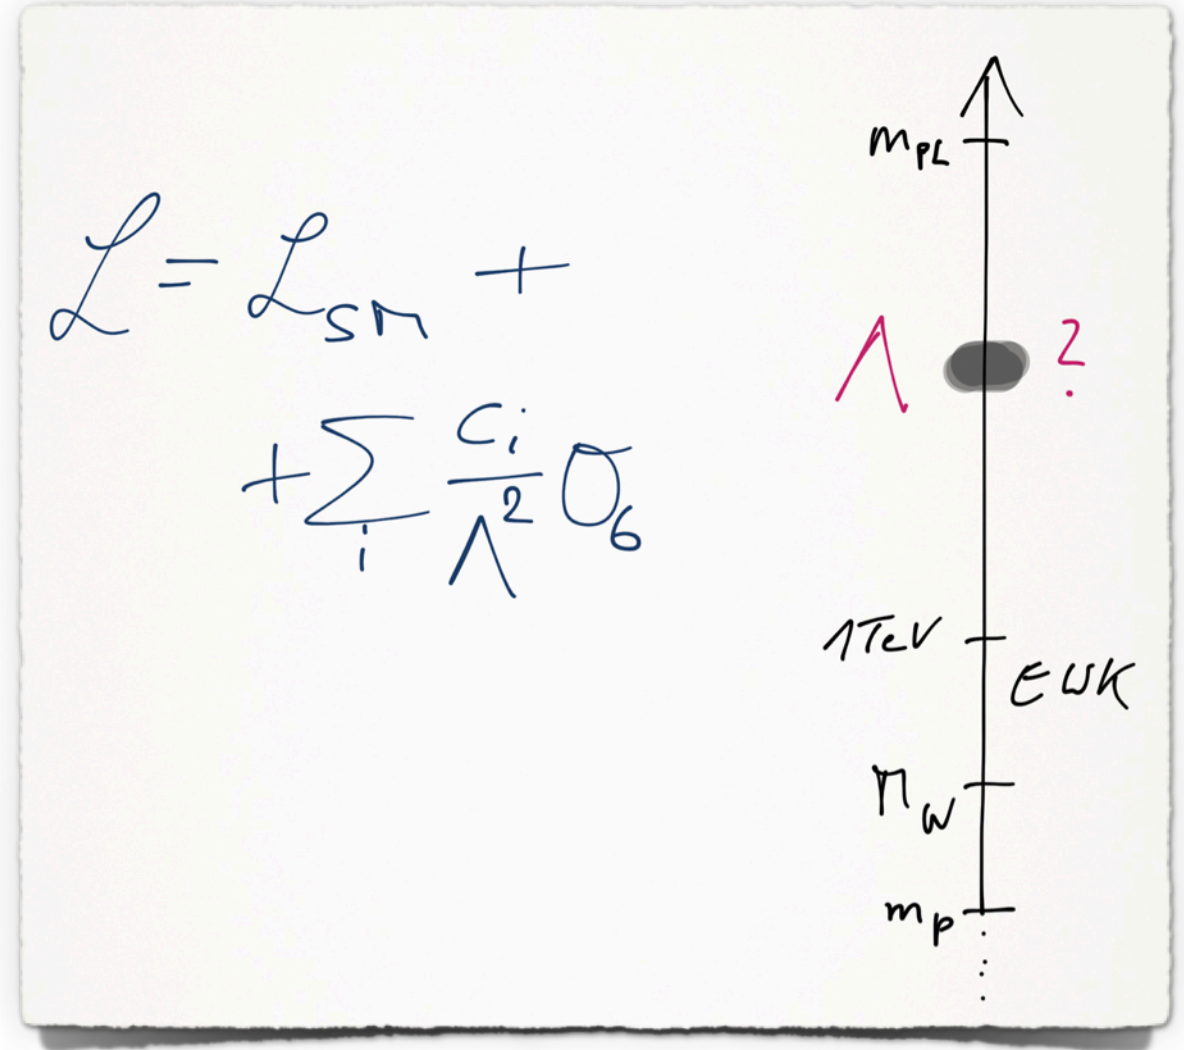 ℒ = ℒ_SM +
+ ∑_i c_i/Λ² O_6
m_PL
Λ ?
1TeV
EWK
M_W
m_p